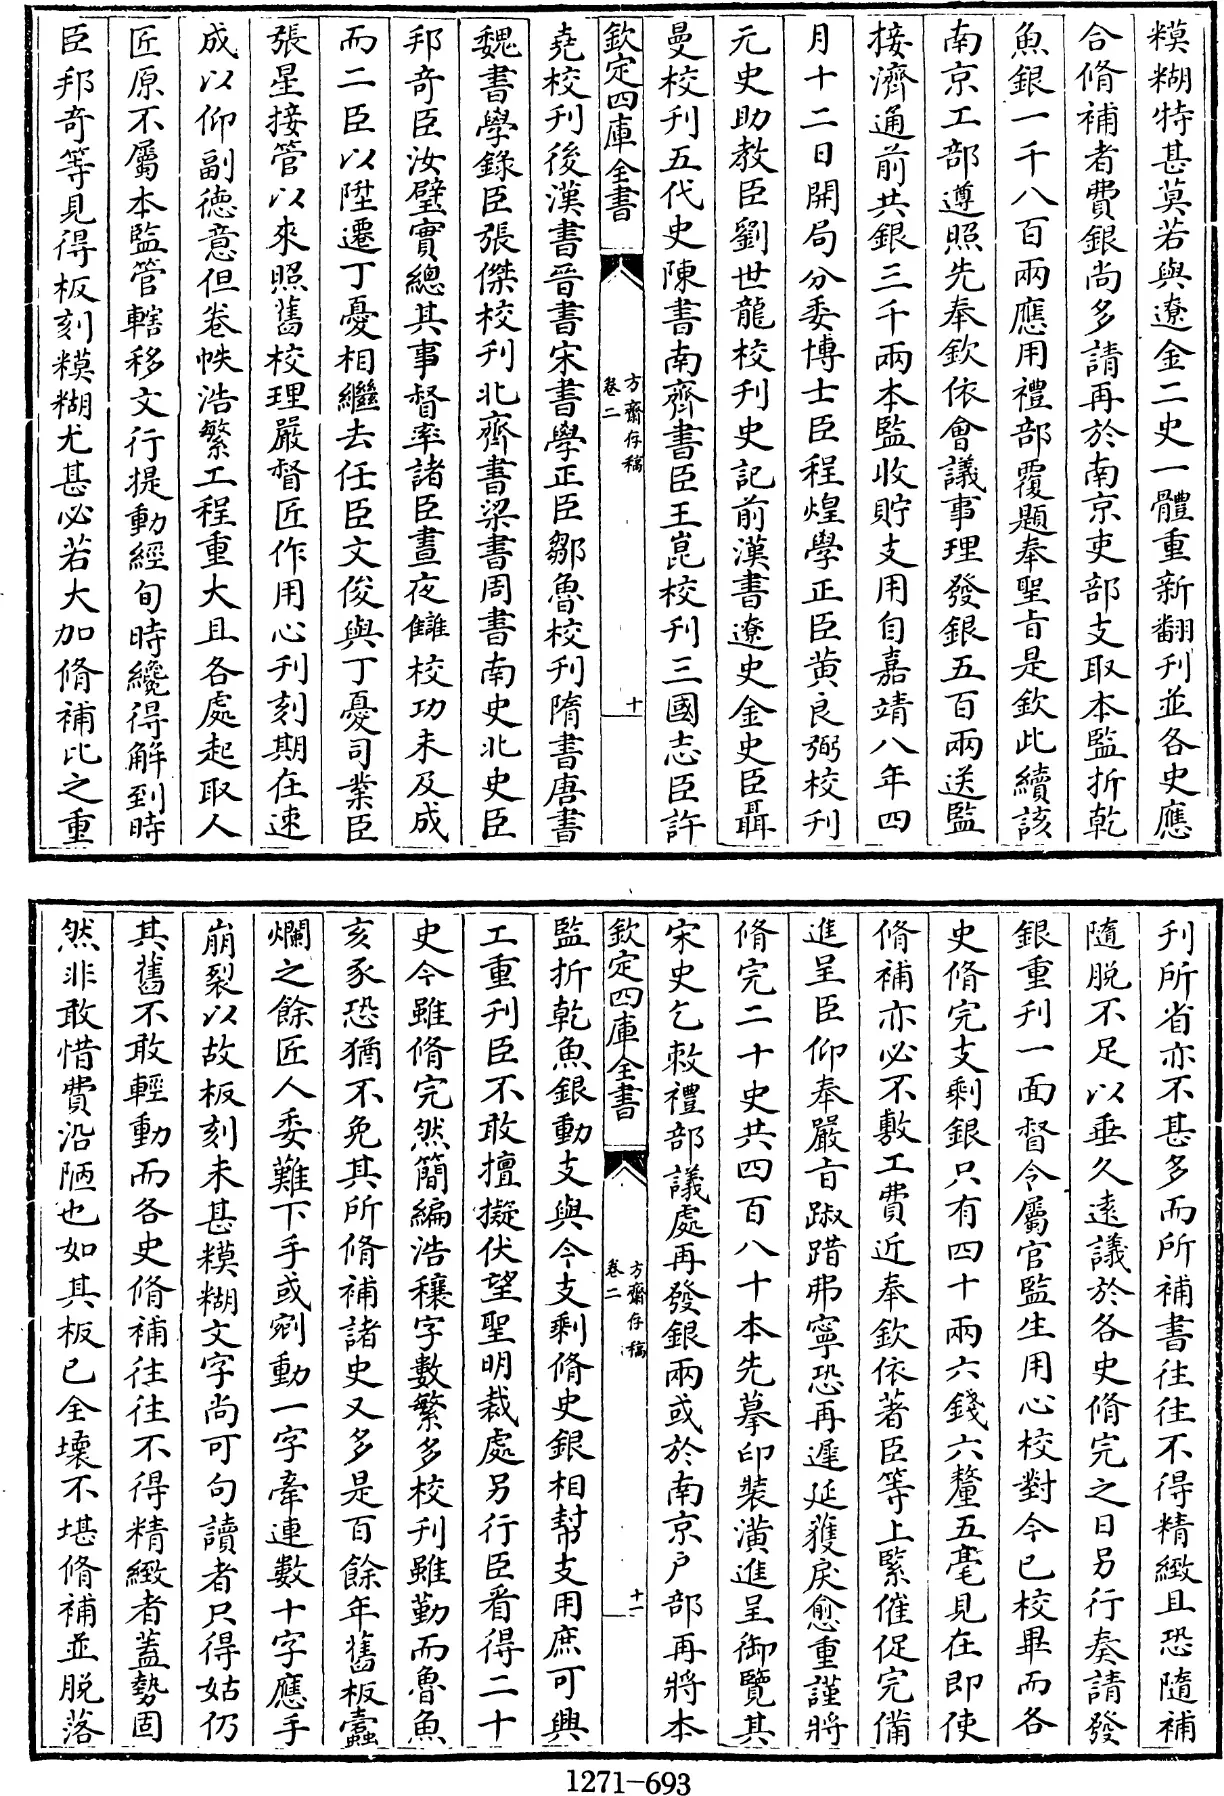 糢糊特甚莫若與遼金二史一體重新翻刊並各史應
合脩補者費銀尚多請再於南京吏部支取本監折乾
魚銀一千八百兩應用禮部覆題奉聖㫖是欽此續該
南京工部遵照先奉欽依會議事理發銀五百兩送監
接濟通前共銀三千兩本監收貯支用自嘉靖八年四
月十二日開局分委博士臣程煌學正臣黄良弼校刊
元史助教臣劉世龍校刊史記前漢書遼史金史臣聶
曼校刊五代史陳書南齊書臣王崑校刊三國志臣許
欽定四庫全書
方齋存稿
卷二
十
堯校刊後漢書晉書宋書學正臣鄒魯校刊隋書唐書
魏書學錄臣張傑校刊北齊書梁書周書南史北史臣
邦竒臣汝璧實總其事督率諸臣晝夜讎校功未及成
而二臣以陞遷丁憂相繼去任臣文俊與丁憂司業臣
張星接管以來照舊校理嚴督匠作用心刊刻期在速
成以仰副徳意但卷帙浩繁工程重大且各處起取人
匠原不屬本監管轄移文行提動經旬時纔得解到時
臣邦竒等見得板刻糢糊尤甚必若大加脩補比之重
刊所省亦不甚多而所補書往往不得精緻且恐隨補
隨脱不足以垂久遠議於各史脩完之日另行奏請發
銀重刊一面督令屬官監生用心校對今已校畢而各
史脩完支剩銀只有四十兩六錢六釐五毫見在即使
脩補亦必不敷工費近奉欽依著臣等上緊催促完備
進呈臣仰奉嚴㫖踧踖弗寧恐再遲延獲戾愈重謹將
脩完二十史共四百八十本先摹印裝潢進呈御覽其
宋史乞敕禮部議處再發銀兩或於南京户部再將本
欽定四庫全書
方齋存稿
卷二
十一
監折乾魚銀動支與今支剩脩史銀相幫支用庶可興
工重刊臣不敢擅擬伏望聖明裁處另行臣看得二十
史今雖脩完然簡編浩穰字數繁多校刊雖勤而魯魚
亥豕恐猶不免其所脩補諸史又多是百餘年舊板蠧
爛之餘匠人委難下手或剜動一字牽連數十字應手
崩裂以故板刻未甚糢糊文字尚可句讀者只得姑仍
其舊不敢輕動而各史脩補往往不得精緻者蓋勢固
然非敢惜費沿陋也如其板已全壞不堪脩補並脱落
1271-693